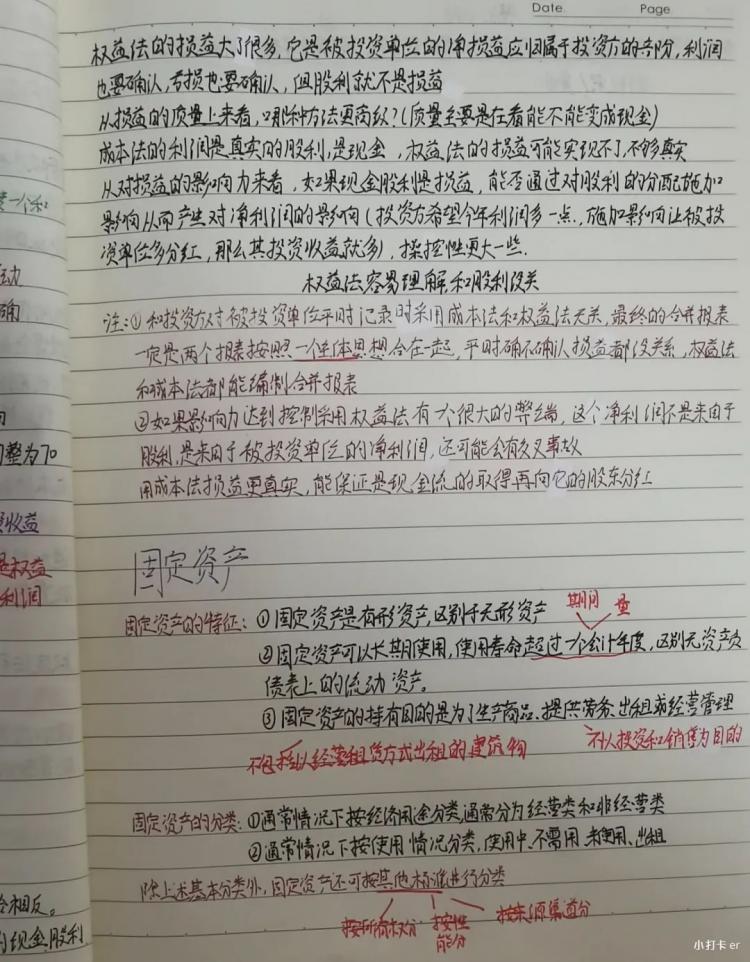 Date.
Page
权益法的损益大了很多,它是被投资单位的净损益应归属于投资方的部分,利润
也要确认,亏损也要确认,但股利就不是损益
从损益的质量上来看,哪种方法更高级?(质量主要是在看能不能变成现金)
成本法的利润是真实的股利,是现金,权益法的损益可能实现不了,不够真实
从对损益的影响力来看,如果现金股利是损益,能否通过对股利的分配施加
影响从而产生对净利润的影响(投资方希望今年利润多一点,施加影响让被投
资单位多分红,那么其投资收益就多),操控性更大一些.
权益法容易理解,和股利没关
注:①和投资方对被投资单位平时记录时采用成本法和权益法无关,最终的合并报表
一定是两个报表按照一个主体思想合在一起,平时确不确认损益都没关系,权益法
和成本法都能编制合并报表
②如果影响力达到控制采用权益法有个很大的弊端,这个净利润不是来由于
股利,是来由于被投资单位的净利润,还可能会有交叉事故
用成本法损益更真实,能保证是现金流的取得再向它的股东分红
固定资产
期间 量
固定资产的特征:①固定资产是有形资产,区别于无形资产
②固定资产可以长期使用,使用寿命超过一个会计年度,区别无资产负
债表上的流动资产。
③固定资产的持有目的是为了生产商品、提供劳务、出租或经营管理
不包括以经营租赁方式出租的建筑物
不以投资和销售为目的
固定资产的分类:①通常情况下按经济用途分类,通常分为经营类和非经营类
②通常情况下按使用情况分类,使用中、不需用、未使用、出租
除上述基本分类外,固定资产还可按其他标准进行分类
按所有权分
按性能分
按来源渠道分
一个和
动
确
整为70
收益
是权益
利润
相反。
的现金股利
小打卡 er